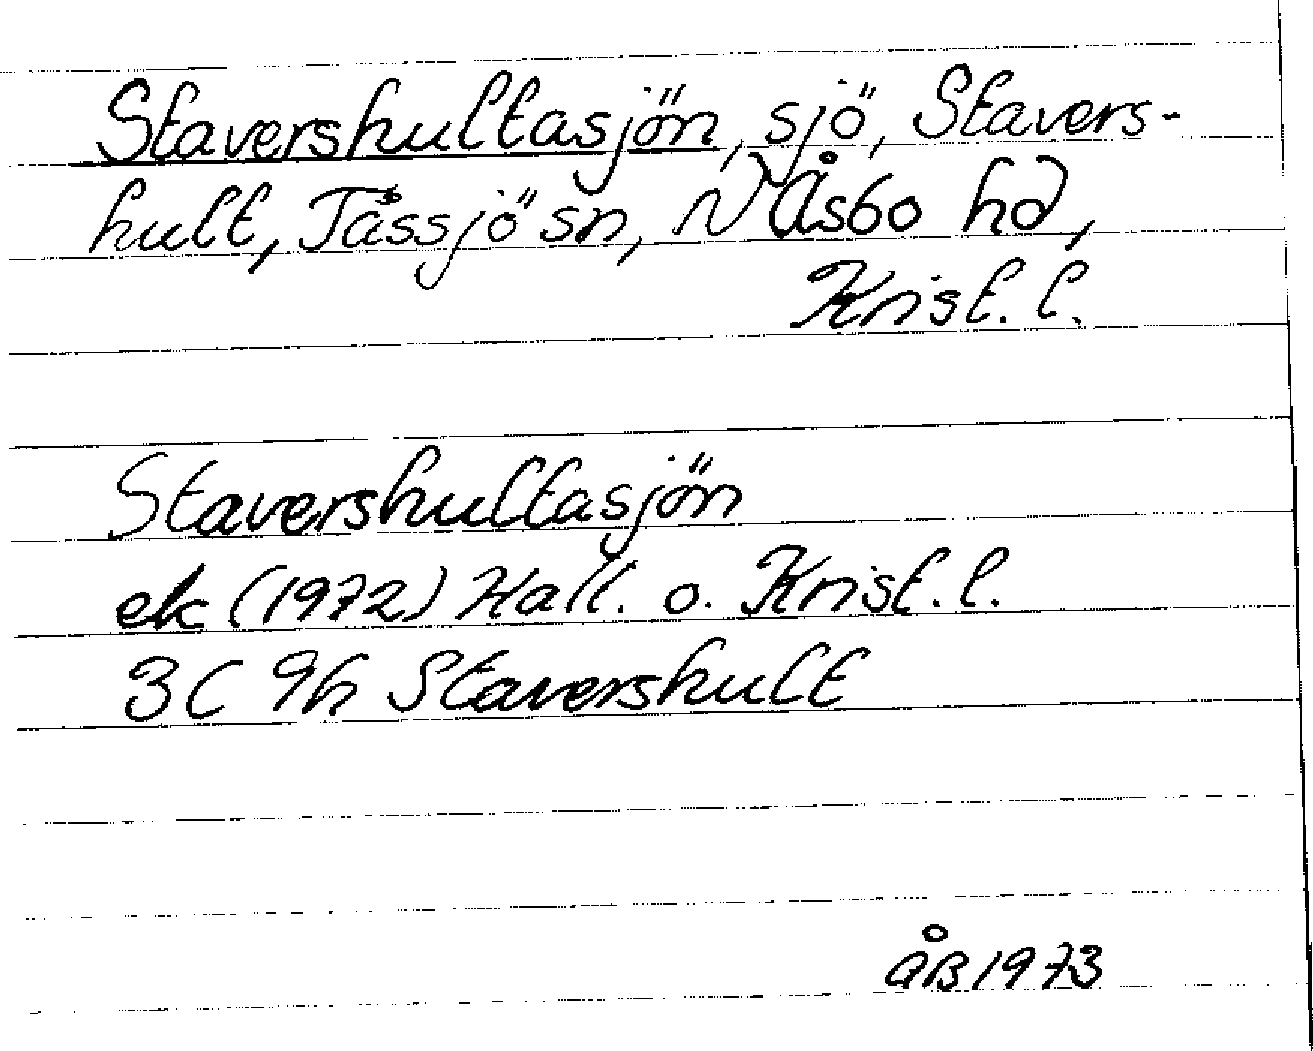 Stavershultasjön, sjö, Stavers-
hult, Tåssjö sn, N Åsbo hd,
Krist. l.
Stavershultasjön
ek (1972) Hall. o. Krist. l.
3C 9h Stavershult
ÅB 1973